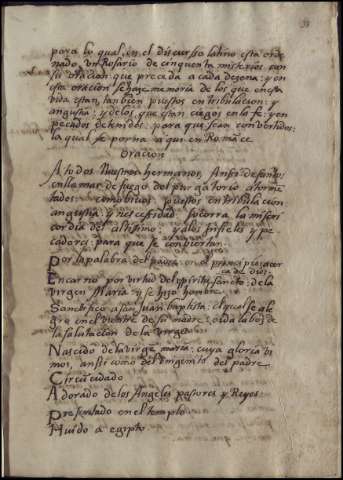 para lo qual, en el discurso latino esta orde
nado un Rosario de cinquenta misterios con
su oracion que preceda a cada dezena: y en
esta oracion se haze memoria de los que en esta
vida estan, tanbien puestos en tribulacion: y
angustia: y de los que estan ciegos en la fe: y en
pecados detenidos: para que sean convertidos:
la qual se porna aqui en Romāce
Oracion
A todos nuestros hermanos, ansi defuntos,
en llamas de fuego del purgatorio atorme
tados como bivos puestos en tribulacion
angustia: y necessidad, socorra la miseri
cordia del altissimo: y a los infieles y pe
cadores: para que se conviertan.
Por la palabra del padre: en el
ca de dios:
Encarno por virtud del spiritu sancto: de la
virgen Maria y se hizo hombre.
Sanctifico a sant Juan baptista: el qual se ale
gro en el vientre de su madre, oida la boz de
la salutacion de la virgen
Nascido de la virgē maria: cuya gloria vi
mos, ansi como del unigenito del padre
Circuncidado
Adorado de los Angeles pastores y Reyes:
Presentado en el templo.
Huido a egipto